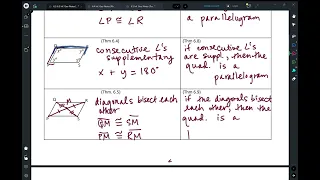 ∠P ≅ ∠R
a parallelogram
(Thm 6.4)
consecutive ∠'s
supplementary
x + y = 180°
(Thm 6.8)
if consecutive ∠'s
are suppl., then the
quad. is a
parallelogram
(Thm. 6.5)
diagonals bisect each
other
QM ≅ SM
PM ≅ RM
(Thm 6.9)
if the diagonals bisect
each other, then the
quad. is a